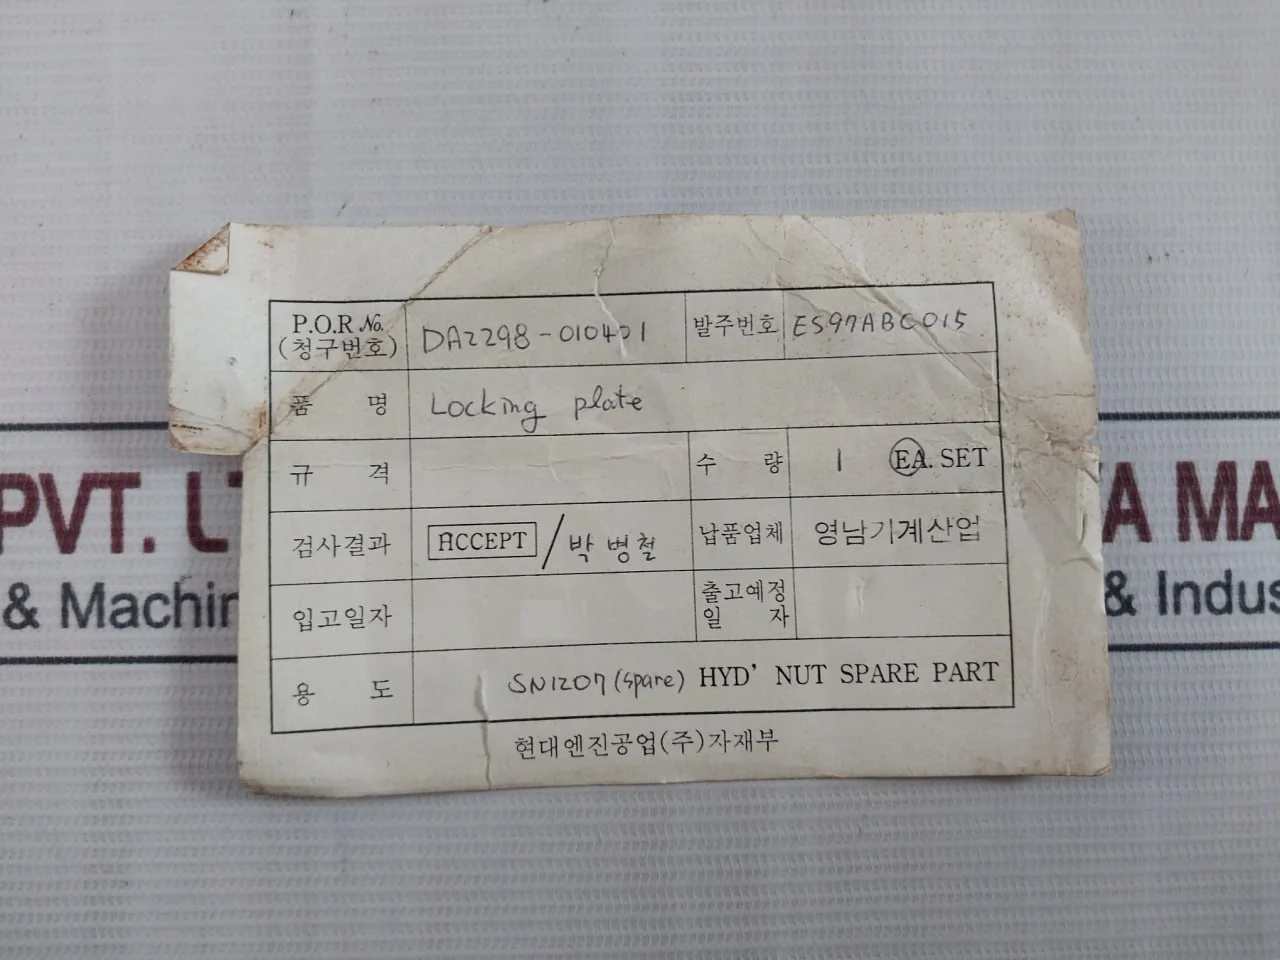 P.O.R No. DA2298-010401 발주번호 ES97ABC015
(청구번호)
품 명 Locking plate
규 격 수 량 1 EA. SET
검사결과 ACCEPT / 박병철 납품업체 영남기계산업
입고일자 출고예정
일 자
용 도 SN1207 (spare) HYD' NUT SPARE PART
현대엔진공업(주)자재부
PVT. A MA
& Machin & Indus